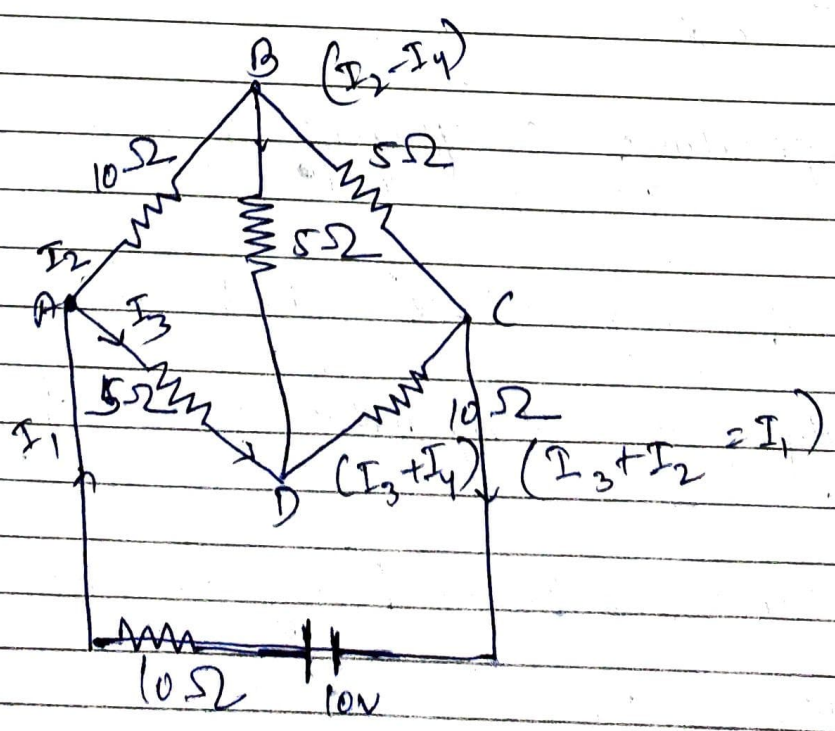 B (I₂-I₄)
10Ω
5Ω
I₂
5Ω
A
I₃
C
5Ω
10Ω
I₁
(I₃+I₄)
(I₃+I₂ = I₁)
D
10Ω
10V